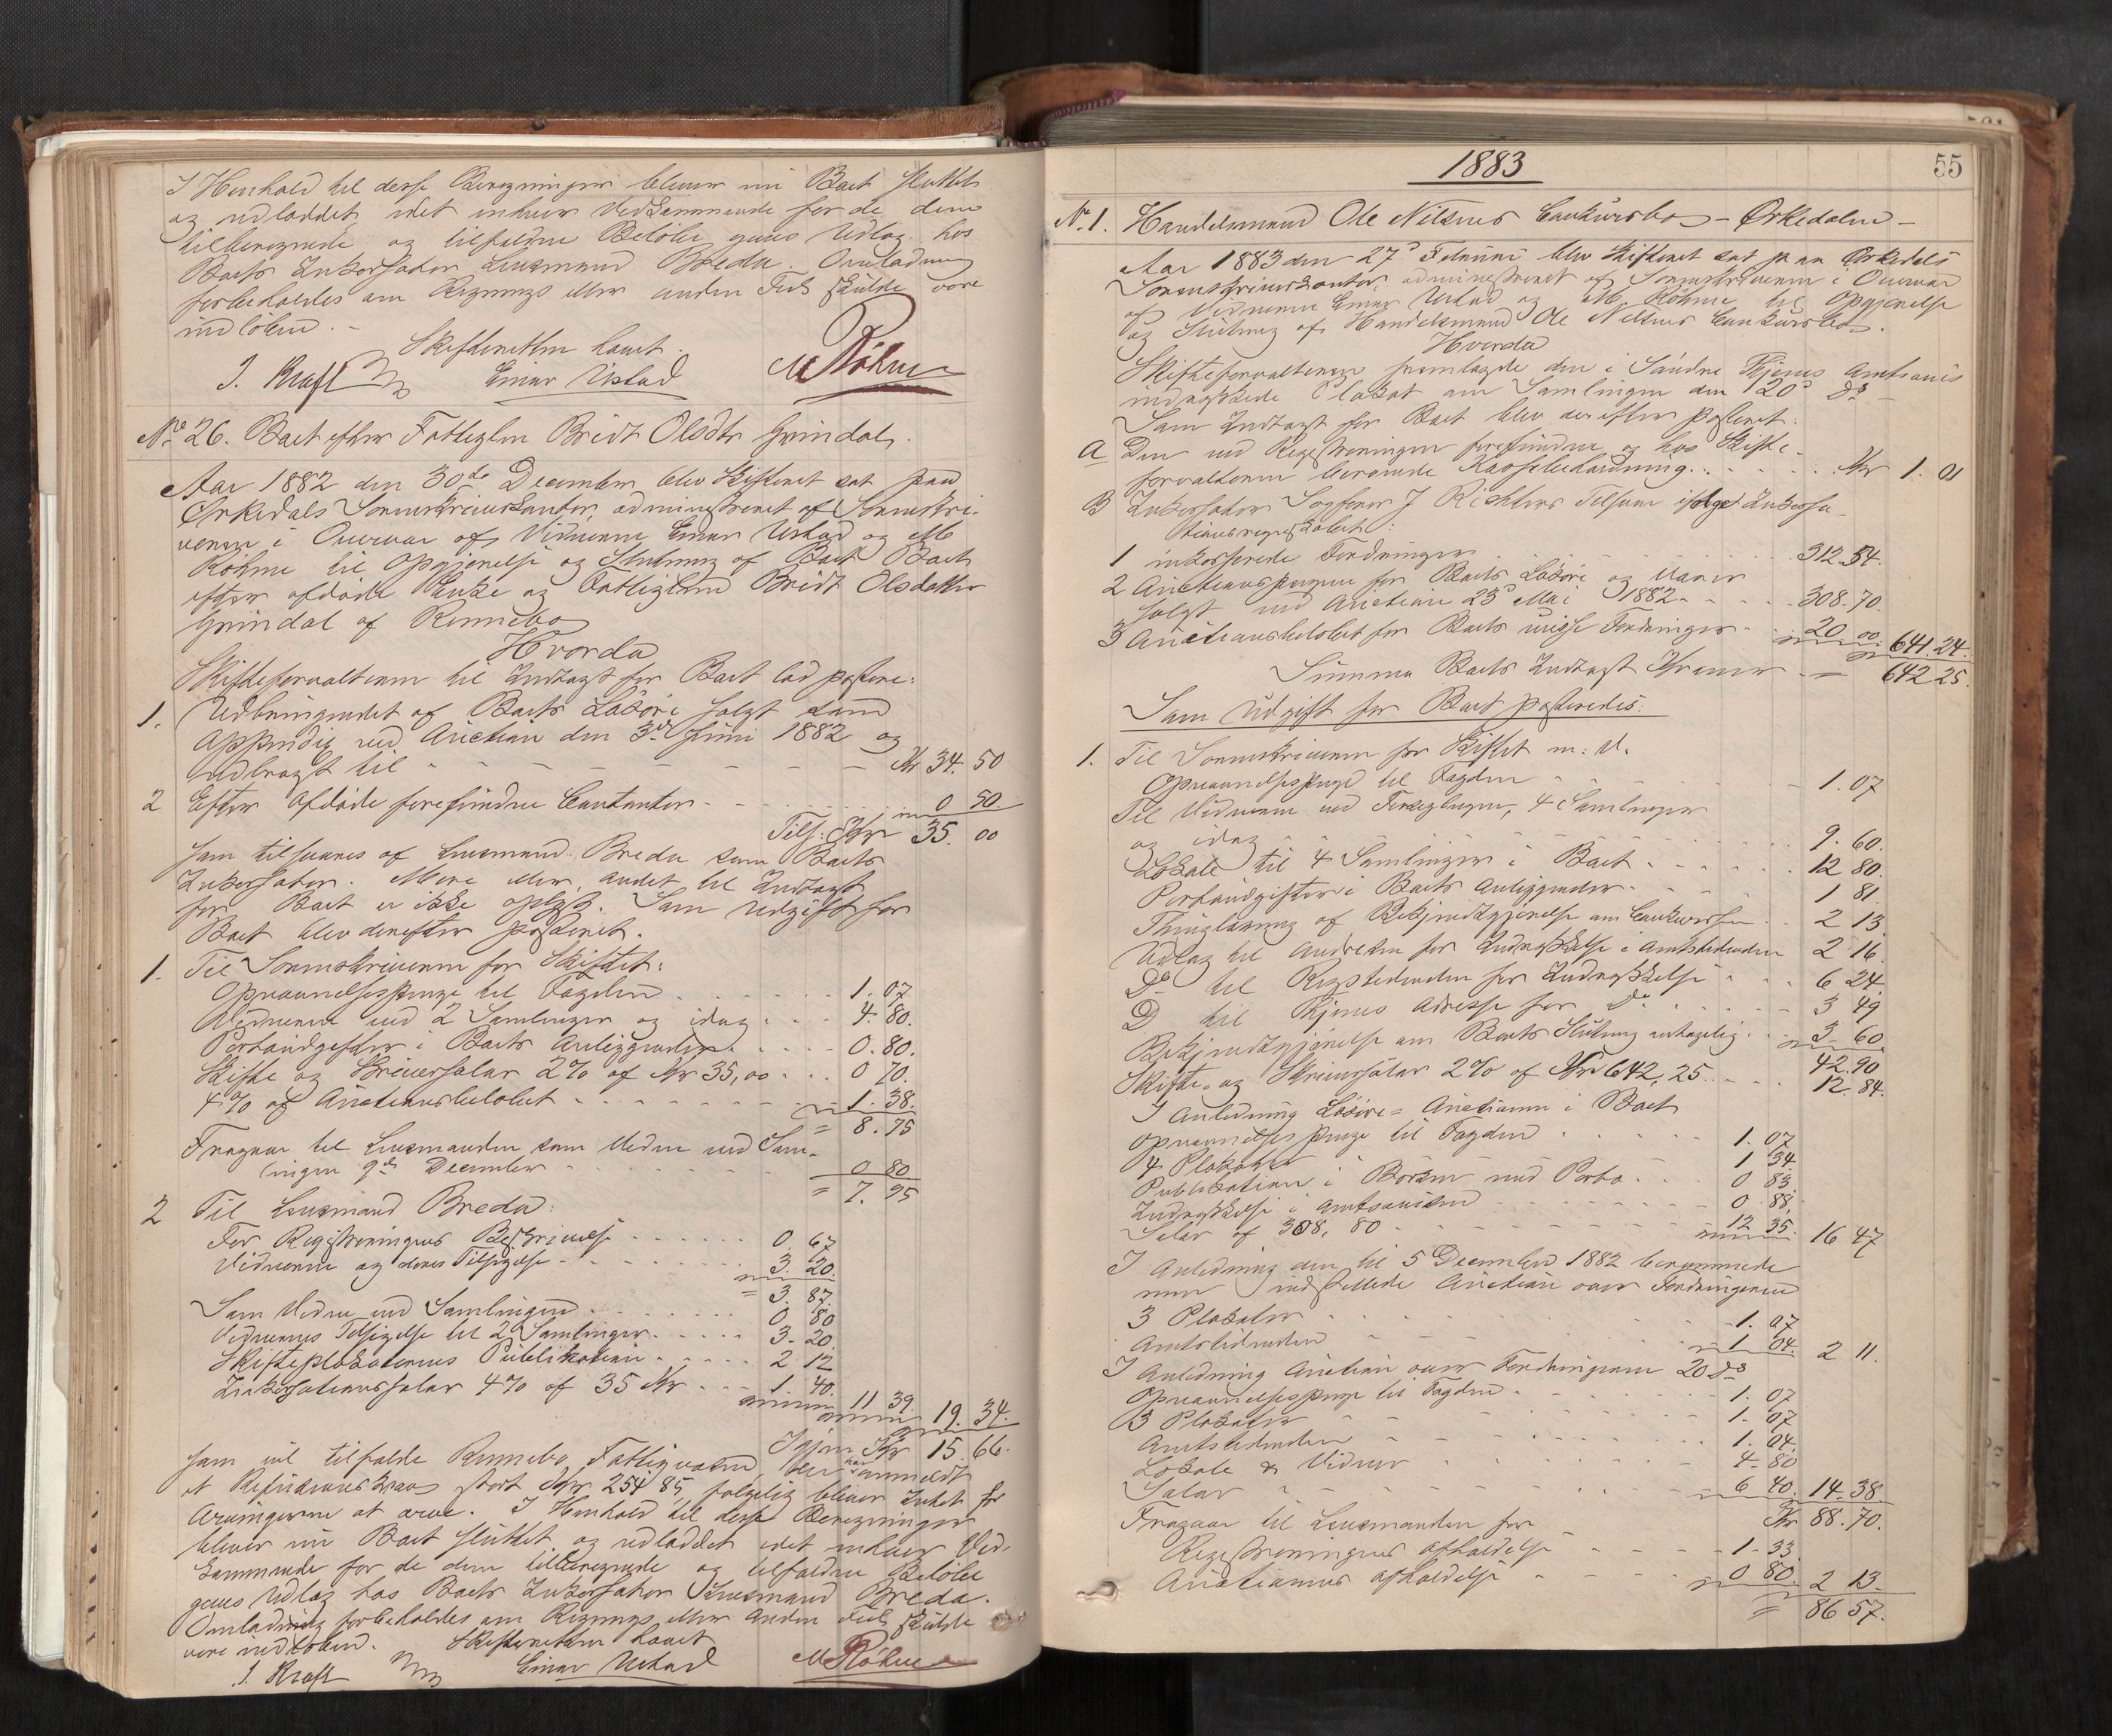 I Henhold til desse Beregninger bliver nu Boet sluttet
og udloddet, idet enhver Vedkommende for de dem
tilberegnede og tilfaldne Beløbe gives Udlæg hos
Boets Inkassator Lensmand Breda. Omlodning
forbeholdes om Regnings eller anden Feil skulde være
indløben. -
Skifteretten hævet.
J. Kraft Einar Ustad M Röhme
No 26. Boet efter Fattiglem Bridt Olsdtr Grindal.
Aar 1882 den 30de December blev Skifteret sat paa
Orkedals Sorenskriverkontor, administreret af Sorenskri-
veren i Overvær af Vidnerne Einar Ustad og M
Röhme til Opgjørelse og Slutning af Boet Boet
efter afdøde Enke og Fattiglem Bridt Olsdatter
Grindal af Rennebo
Hvorda
Skifteforvalteren til Indtægt for Boet lod postere:
1. Udbringendet af Boets Løsøre solgt som
Appendix ved Auction den 3die Juni 1882 og
udbragt til - - - Kr 34. 50
2 Efter Afdøde forefundne Contanter - - - 0 50.
Tils: Kr 35. 00
som tilsvares af Lensmand Breda som Boets
Inkassator. Mere eller andet til Indtægt
for Boet er ikke oplyst. Som Udgift for
Boet blev derefter posteret.
1. Til Sorenskriveren for Skiftet:
Opnævnelsespenge til Fogden . . . 1. 07
Vidnerne ved 2 Samlinger og idag . . . 4. 80.
Portoudgifter i Boets Anliggender. . . . 0. 80.
Skifte og Skriversalær 2% af Kr 35,00 . . . 0 70.
4% af Auctionsbeløbet - - - 1. 38.
= 8. 75
Fragaar til Lensmanden som Vidne ved Sam-
lingen 9de December - - - 0 80
= 7. 95
2 Til Lensmand Breda:
For Registreringens Beskrivelse . . . 0. 67
Vidnerne og deres Tilsigelse - - - 3. 20.
= 3. 87.
Som Vidne ved Samlingen . . . 0 80
Vidnernes Tilsigelse til 2 Samlinger. . . . 3. 20.
Skifteplakaternes Publikation . . . 2 12
Inkassationssalær 4% af 35 Kr . . . 1 40.
11 39. 19. 34.
Igjen Kr 15 66.
som vil tilfalde Rennebo Fattigvæsen, der har anmeldt
et Refusionskrav stort Kr 254 85, følgelig bliver Intet for
Arvingerne at arve. I Henhold til desse Beregninger
bliver nu Boet sluttet og udloddet idet enhver Ved-
kommende for de dem tilberegnede og tilfaldne Beløbe
gives Udlæg hos Boets Inkassator Lensmand Breda.
Omlodning forbeholdes om Regnings eller anden Feil skulde
være indløben. Skifteretten hævet
J. Kraft Einar Ustad M Röhme
1883
55
No. 1. Handelsmand Ole Nilsens Conkursbo - Orkedalen -
Aar 1883 den 27de Februar blev Skifteret sat paa Orkedals
Sorenskriverkontor, administreret af Sorenskriveren i Overvær
af Vidnerne Einar Ustad og M. Röhme til Opgjørelse
og Slutning af Handelsmand Ole Nilsens Conkursbo.
Hvorda
Skifteforvalteren fremlagde den i Søndre Thjems Amtsavis
indrykkede Plakat om Samlingen den 20de ds -
Som Indtægt for Boet blev derefter posteret:
A Den ved Registreringen forefundne og hos Skifte-
forvalteren beroende Kassebeholdning. . . . Kr 1. 01
B Inkassator Sagfører J Richters Tilsvar ifølge Inkassa-
tionsregnskabet:
1 inkasserede Fordringer . . . 312. 54.
2 Auctionspengene for Boets Løsøre og Varer
solgt ved Auction 23de Mai 1882 - - - 308. 70.
3 Auctionsbeløbet for Boets uvisse Fordringer - - 20 00. 641. 24.
Summa Boets Indtægt Kroner - - 642 25.
Som Udgift for Boet posteredes:
1. Til Sorenskriveren for Skiftet m: V.
Opnævnelsespenge til Fogden - - - 1. 07
Til Vidnerne ved Forseglingen, 4 Samlinger
og idag - - - 9. 60.
Lokale til 4 Samlinger i Boet . . . 12 80.
Portoudgifter i Boets Anliggender. - - 1 81.
Thinglæsning af Bekjendtgjørelse om Conkursen . . 2 13.
Udlæg til Andresen for Indrykkelse i Amtstidenden 2 16.
Do til Rigstidenden for Indrykkelse - - 6 24.
Do til Thjems Adresse for Do . . . 3 49
Bekjendtgjørelse om Boets Slutning antagelig . . 3 60.
42. 90
Skifte- og Skriversalær 2% af Kr 642,25 . . . 12. 84.
I Anledning Løsøre= Auctionen i Boet
Opnævnelsespenge til Fogden . . . 1. 07
4 Plakater 1 34.
Publikation i Börsen med Porto . . . 0 83.
Indrykkelse i Amtsavisen . . . 0. 88.
Salær af 308, 80 - - - 12 35. 16 47
I Anledning den til 5 December 1882 berammede
men indstillede Auction over Fordringerne
3 Plakater . . . 1. 07
Amtstidenden - - - 1 04. 2 11.
I Anledning Auction over Fordringerne 20 ds
Opnævnelsespenge til Fogden . . . 1. 07
3 Plakater - - - 1. 07
Amtstidenden - - - 1. 04.
Lokale & Vidner . . . 4. 80
Salær - - - 6 40. 14. 38
Kr 88. 70.
Fragaar til Lensmanden for
Registreringens Afholdelse - - - 1. 33
Auctionens Afholdelse - - - 0 80. 2 13.
= 86 57.